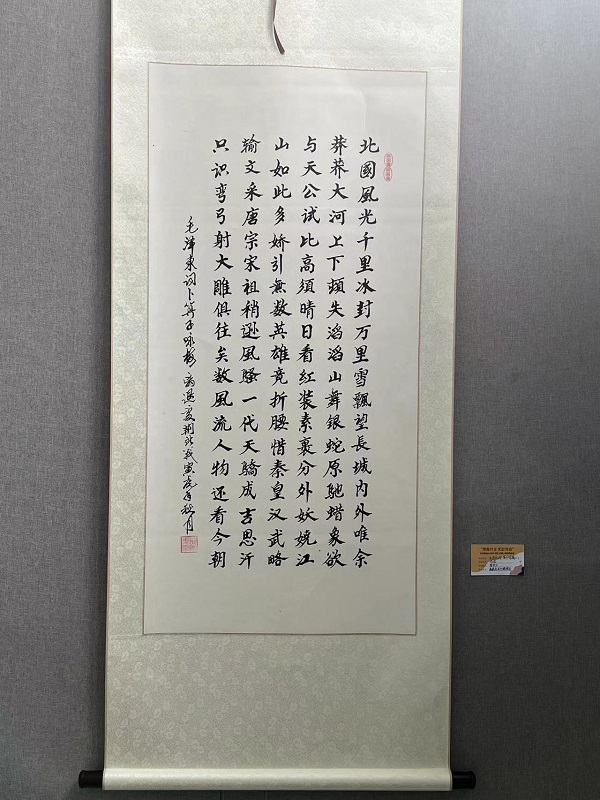 北國風光千里冰封万里雪飄望長城内外唯余
莽莽大河上下頓失滔滔山舞銀蛇原馳蜡象欲
与天公試比高須晴日看紅装素裹分外妖娆江
山如此多娇引無数英雄竞折腰惜秦皇汉武略
输文采唐宗宋祖稍逊風騷一代天驕成吉思汗
只识弯弓射大雕俱往矣数風流人物还看今朝
毛泽东词卜算子咏梅 秋月